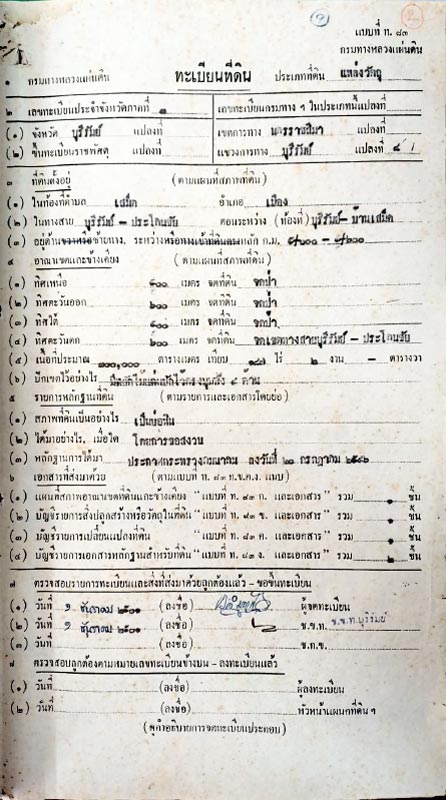 ๒
แบบที่ ท. ๘๓
กรมทางหลวงแผ่นดิน
๑ กรมทางหลวงแผ่นดิน ทะเบียนที่ดิน ประเภทที่ดิน แหล่งวัตถุ
๒ เลขทะเบียนประจำจังหวัดภาคที่ ๑ เลขทะเบียนกรมทาง ฯ ในประเภทนี้แปลงที่
(๑) จังหวัด บุรีรัมย์ แปลงที่ เขตการทาง นครราชสีมา
(๒) ขึ้นทะเบียนราชพัสดุ แปลงที่ แขวงการทาง บุรีรัมย์ แปลงที่ ๔
๓ ที่ดินตั้งอยู่ (ตามแผนที่สภาพที่ดิน)
(๑) ในท้องที่ตำบล เสม็ด อำเภอ เมือง
(๒) ในทางสาย บุรีรัมย์ - ประโคนชัย ตอนระหว่าง (ท้องที่) บุรีรัมย์ - บ้านเสม็ด
(๓) อยู่ด้านขวาหรือซ้ายทาง, ระหว่างหรือทางเข้าที่ดินตรงหลัก ก.ม.
๔ อาณาเขตและข้างเคียง (ตามแผนที่สภาพที่ดิน)
(๑) ทิศเหนือ ๘๐๐ เมตร จดที่ดิน จดป่า
(๒) ทิศตะวันออก ๒๐๐ เมตร จดที่ดิน จดป่า
(๓) ทิศใต้ ๘๐๐ เมตร จดที่ดิน จดป่า
(๔) ทิศตะวันตก ๒๐๐ เมตร จดที่ดิน จดเขตทางสายบุรีรัมย์ - ประโคนชัย
(๕) เนื้อที่ประมาณ ตารางเมตร เทียบ ไร่ ๒ งาน - ตารางวา
(๖) ปักเขตไว้อย่างไร ๔ ด้าน
๕ รายการหลักฐานที่ดิน (ตามรายการและเอกสารโดยย่อ)
(๑) สภาพที่ดินเป็นอย่างไร เป็นบ่อหิน
(๒) ได้มาอย่างไร, เมื่อใด โดยการจองสงวน
(๓) หลักฐานการได้มา ประกาศกระทรวงคมนาคม ลงวันที่ ๒๐ กรกฎาคม
๖ เอกสารที่ส่งมาด้วย (ตามแบบที่ ท. ๘๓ ก.ข.ค.ง. แนบ)
(๑) แผนที่สภาพอาณาเขตที่ดินและข้างเคียง "แบบที่ ท. ๘๓ ก. และเอกสาร" รวม ๑ ชิ้น
(๒) บัญชีรายการสิ่งปลูกสร้างหรือวัตถุในที่ดิน "แบบที่ ท. ๘๓ ข. และเอกสาร" รวม ๑ ชิ้น
(๓) บัญชีรายการเปลี่ยนแปลงที่ดิน "แบบที่ ท. ๘๓ ค. และเอกสาร" รวม ๑ ชิ้น
(๔) บัญชีรายการเอกสารหลักฐานสำหรับที่ดิน "แบบที่ ท. ๘๓ ง. และเอกสาร" รวม ๒ ชิ้น
๗ ตรวจสอบรายการทะเบียนและสิ่งที่ส่งมาด้วยถูกต้องแล้ว - ขอขึ้นทะเบียน
(๑) วันที่ ๑ ธันวาคม ๒๕๐๑ (ลงชื่อ) ผู้จดทะเบียน
(๒) วันที่ ๑ ธันวาคม ๒๕๐๑ (ลงชื่อ) ข.ข.ท. ข.ข.ท.บุรีรัมย์
(๓) วันที่ (ลงชื่อ) ช.ท.ข.
๘ ตรวจสอบถูกต้องตามหมายเลขทะเบียนข้างบน - ลงทะเบียนแล้ว
(๑) วันที่ (ลงชื่อ) ผู้ลงทะเบียน
(๒) วันที่ (ลงชื่อ) หัวหน้าแผนกที่ดิน ฯ
(ดูคำอธิบายการจดทะเบียนประกอบ)